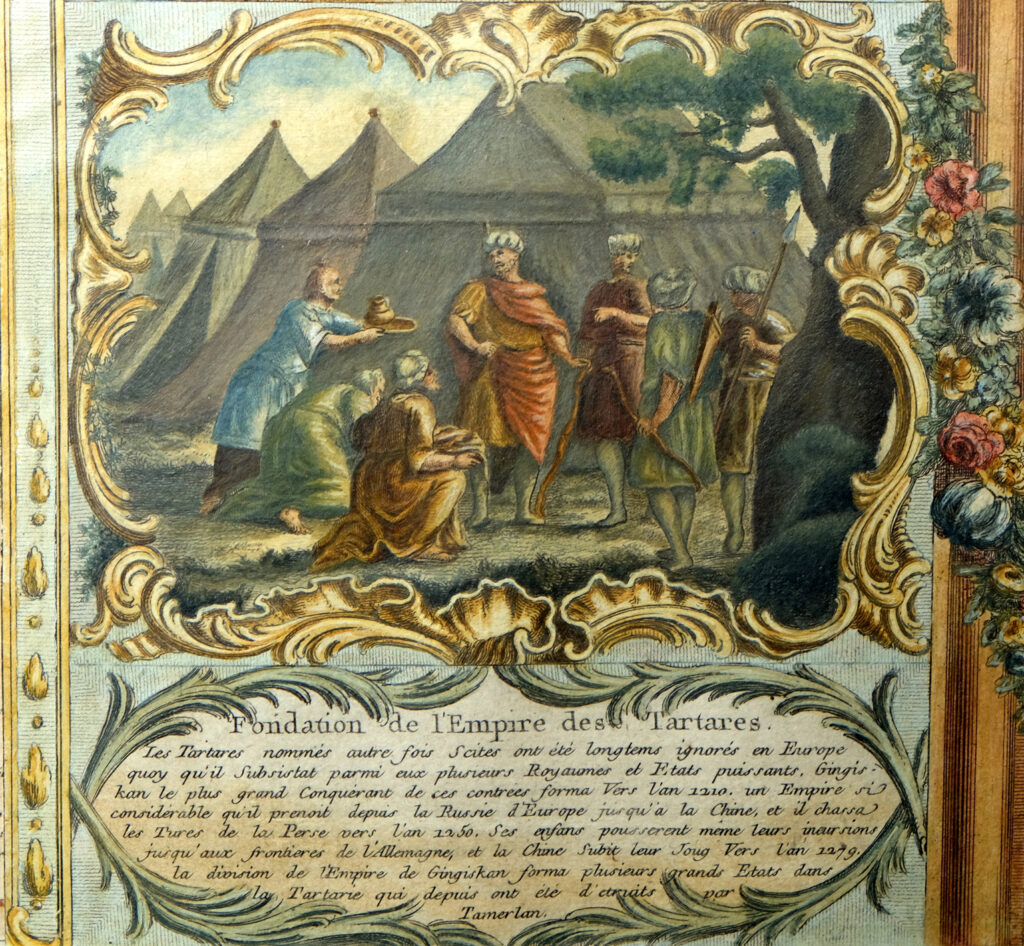 Fondation de l'Empire des Tartares.
Les Tartares nommés autre fois Scites ont été longtems ignorés en Europe
quoy qu'il Subsistat parmi eux plusieurs Royaumes et Etats puissants, Gingis-
kan le plus grand Conquerant de ces contrées forma Vers l'an 1210. un Empire si
considérable qu'il prenoit depuis la Russie d'Europe jusqu'a la Chine, et il chassa
les Turcs de la Perse vers l'an 1250. Ses enfans pousserent même leurs incursions
jusqu'aux frontieres de l'Allemagne, et la Chine Subit leur Joug Vers l'an 1279,
la division de l'Empire de Gingiskan forma plusieurs grands Etats dans
la Tartarie qui depuis ont été d'etruits par
Tamerlan.